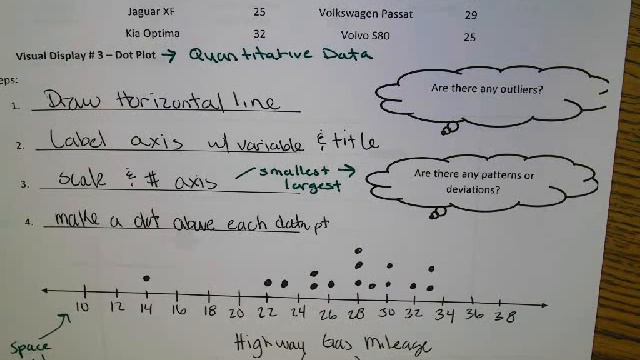 Jaguar XF 25 Volkswagen Passat 29
Kia Optima 32 Volvo S80 25
Visual Display # 3 – Dot Plot → Quantitative Data
eps:
Are there any outliers?
1. Draw Horizontal line
2. Label axis w/ variable & title
3. scale & # axis smallest → largest
Are there any patterns or deviations?
4. make a dot above each data pt
10 12 14 16 18 20 22 24 26 28 30 32 34 36 38
Space
Highway Gas Mileage